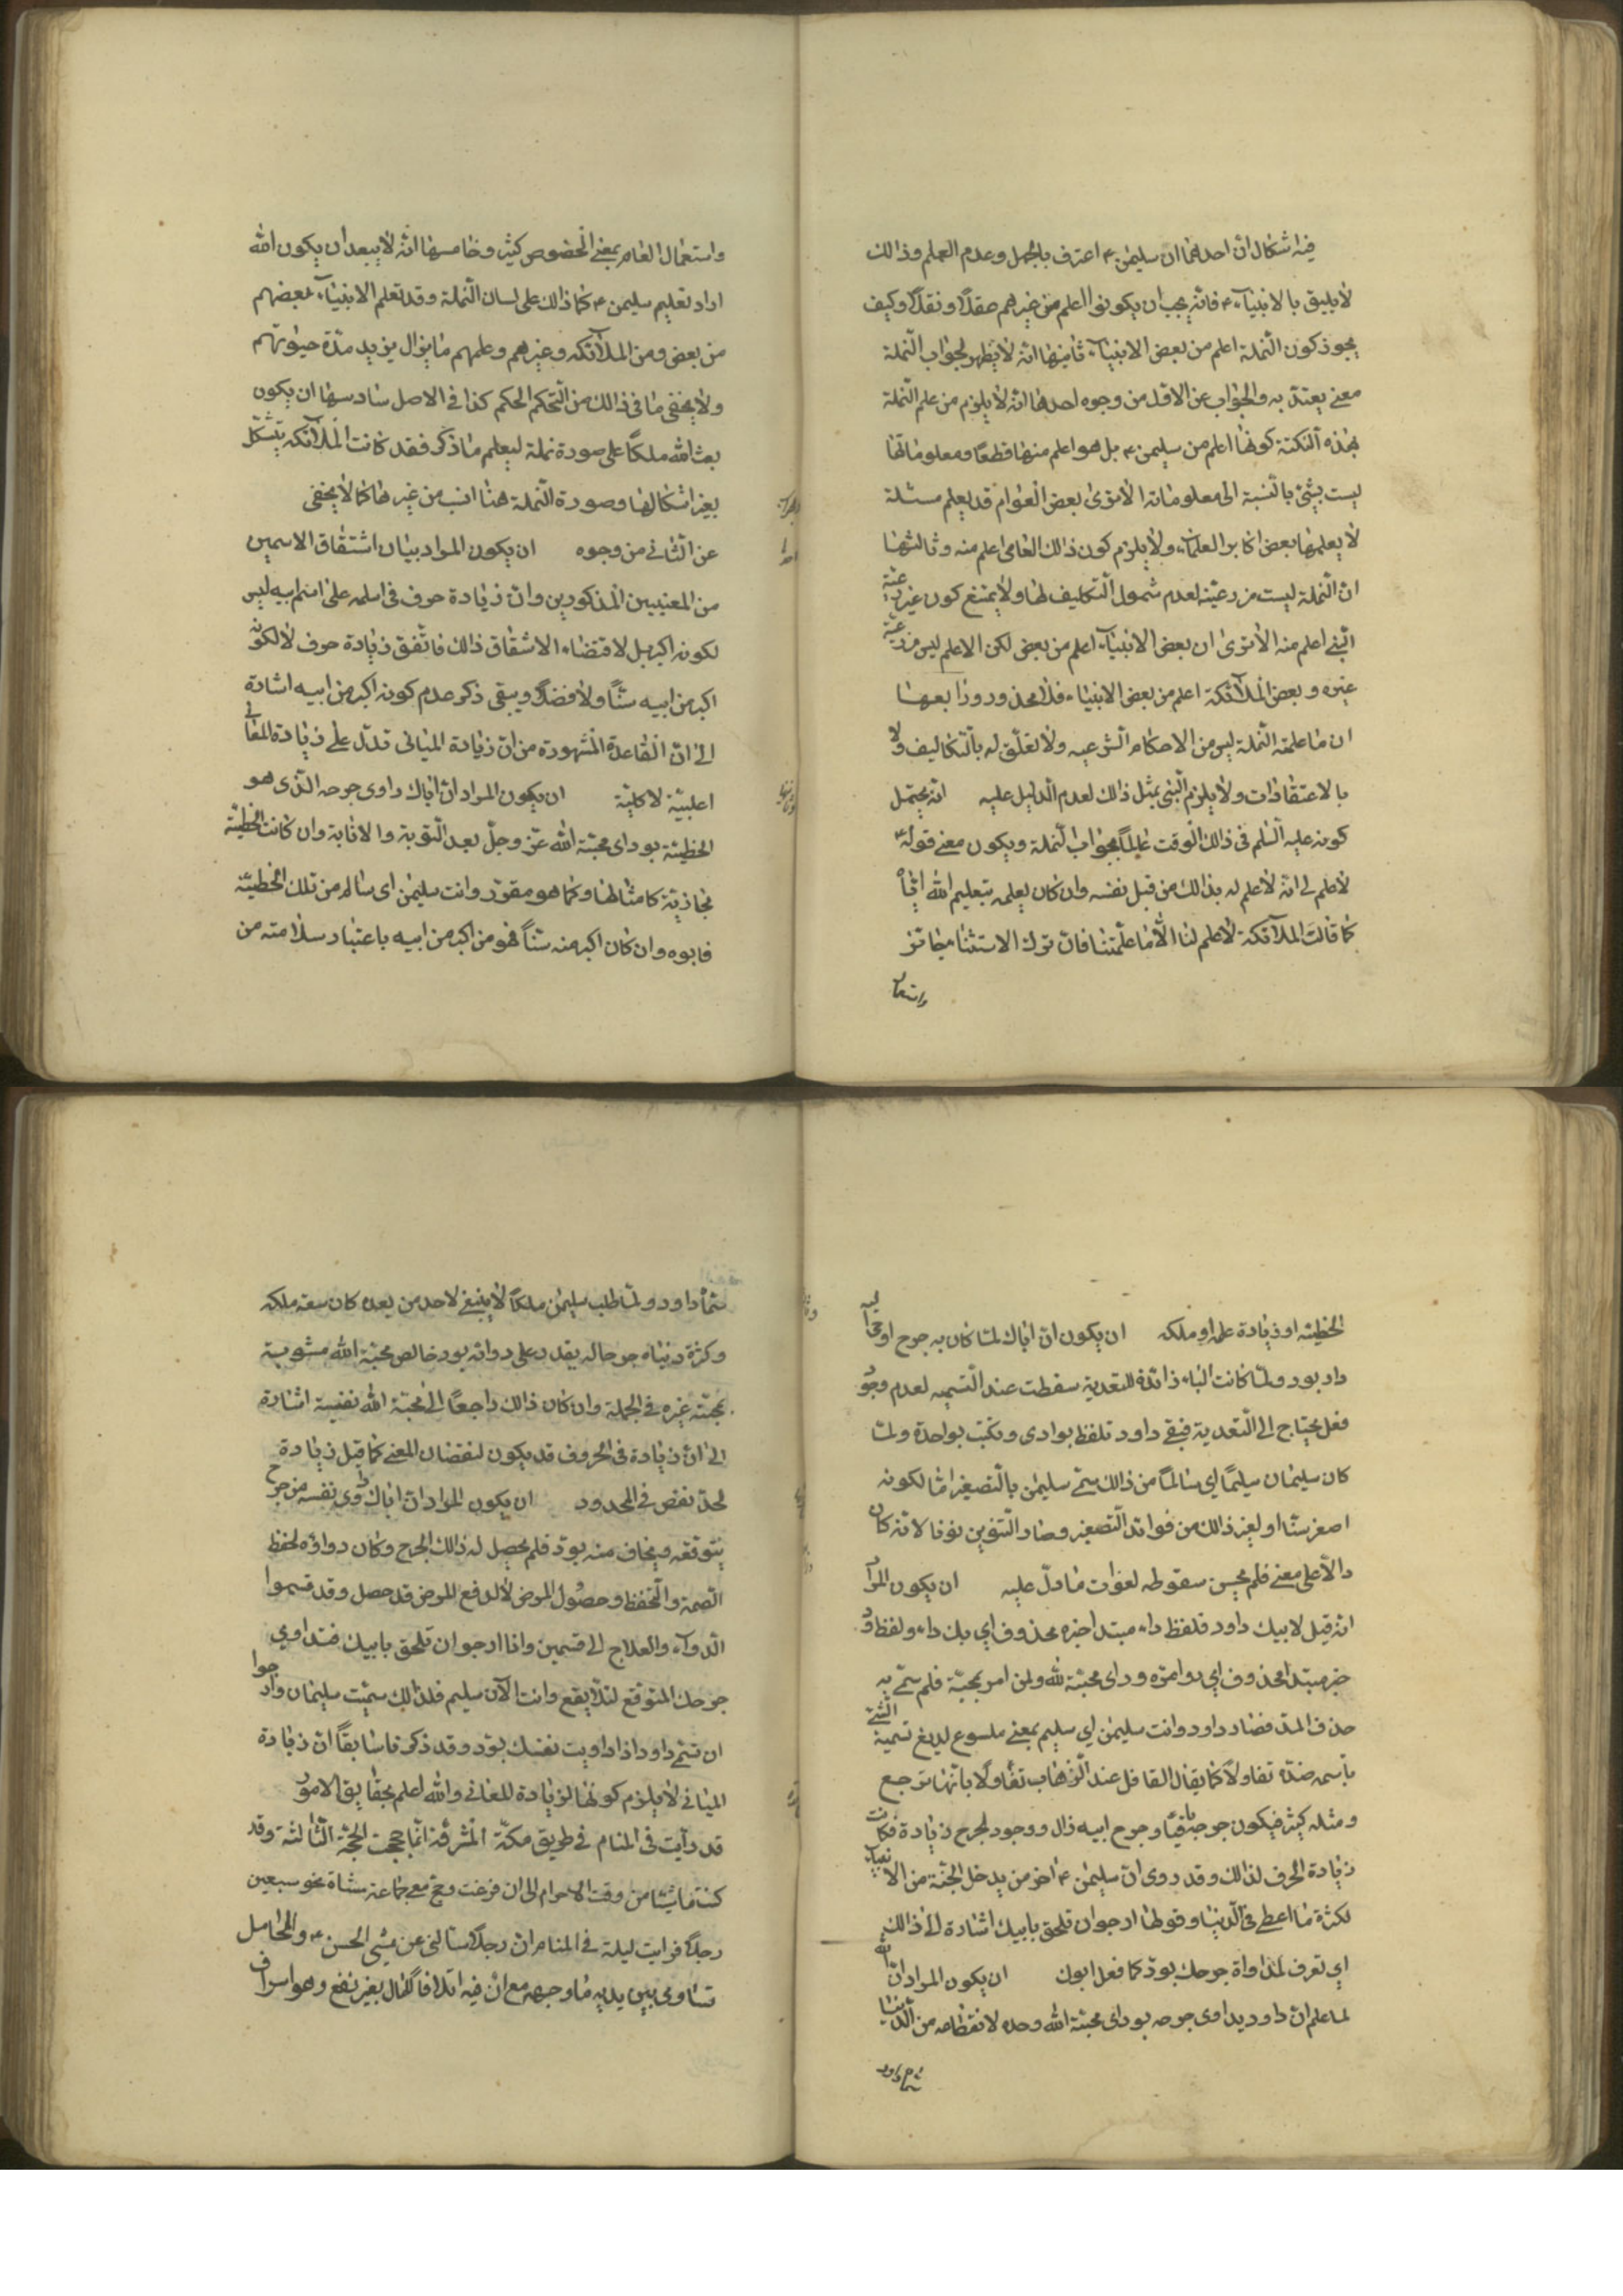 فيه اشكالان احدهما ان سليمن ع اعترف بالجهل وعدم العلم وذالك
لا يليق بالانبياء ع فانه يجب ان يكونوا اعلم من غيرهم عقلاً ونقلاً وكيف
يجوز كون النملة اعلم من بعض الانبياء ثانيها انه لا يظهر لجواب النملة
معنى يعتد به والجواب عن الاول من وجوه احدها انه لا يلزم من علم النملة
بهذه النكتة كونها اعلم من سليمن ع بل هو اعلم منها قطعاً ومعلوماتها
ليست بشئ بالنسبة الى معلوماته الا ترى بعض العوام قد يعلم مسئلة
لا يعلمها بعض اكابر العلماء ولا يلزم كون ذالك العامى اعلم منه وثالثها
ان النملة ليست من رعيته لعدم شمول التكليف لها ولا يمتنع كون غير رعية
النبى اعلم منه الا ترى ان بعض الانبياء اعلم من بعض لكن الاعلم ليس من رعية
غيره وبعض الملائكة اعلم من بعض الانبياء فلا محذور ورابعها
ان ما علمته النملة ليس من الاحكام الشرعيه ولا تعلق له بالتكاليف ولا
بالاعتقادات ولا يلزم النبى بمثل ذالك لعدم الدليل عليه انه يحتمل
كونه عليه السلم فى ذالك الوقت عالماً بجواب النملة ويكون معنى قوله ع
لا علم لى انه لا علم له بذالك من قبل نفسه وان كان يعلمه بتعليم الله اياه
كما قالت الملائكة لا علم لنا الا ما علمتنا فان ترك الاستثنا جائز
واستعمال
واستعمال العام بمعنى الخصوص كثير وخامسها انه لا يبعد ان يكون الله
اراد تعليم سليمن ع كما ذالك على لسان النملة وقد تعلم الانبياء بعضهم
من بعض ومن الملائكه وغيرهم وعلمهم ما يزال يزيد مدة حيوتهم
ولا يخفى ما فى ذالك من التحكم الحكم كذا فى الاصل سادسها ان يكون
بعث الله ملكاً على صورة نملة ليعلم ما ذكر فقد كانت الملائكه يتشكل
بغير اشكالها وصورة النملة هنا انسب من غيرها كما لا يخفى
عن الثانى من وجوه ان يكون المراد بيان اشتقاق الاسمين
من المعنيين المذكورين وان زيادة حرف فى اسلمه على اسم ابيه ليس
لكونه اكبر بل لاقتضاء الاشتقاق ذالك فاتفق زيادة حرف لا لكونه
اكبر من ابيه سناً ولا فضلاً ويبقى ذكر عدم كونه اكبر من ابيه اشارة
الى ان القاعدة المشهورة من ان زيادة المبانى تدل على زيادة المعانى
اغلبية لا كلية ان يكون المراد ان اباك داوى جرحه الذى هو
الخطيئة بود اى محبة الله عز وجل بعد التوبة والانابة وان كانت الخطيئة
مجازية كامثالها وكما هو مقرر وانت سليمن اى سالم من تلك الخطيئة
فابوه وان كان اكبر منه سناً فهو من اكبر من ابيه باعتبار سلامته من
الخطيئه او زيادة علمه او ملكه ان يكون ان اباك لما كان به جرح اوحى اليه
داو بود ولما كانت الباء زائدة للتعدية سقطت عند التسميه لعدم وجود
فعل يحتاج الى التعدية فبقى داود تلفظ بواوى وتكتب بواحدة ولما
كان سليمان سليماً اى سالماً من ذالك سمى سليمن بالتصغير اما لكونه
اصغر سنا او لغير ذالك من فوائد التصغير وصار التنوين نونا لانه كان
دالا على معنى فلم يحسن سقوطه لفوات ما دل عليه ان يكون المراد
انه قيل لابيك داود فلفظ داء مبتدا خبره محذوف اى بك داء ولفظ ود
خبر مبتدا محذوف اى دواءه ود اى محبة لله ولمن امر بمحبة فلم سمى به
حذف المد فصار داود وانت سليمن اى سليم بمعنى ملسوع لديغ تسمية الشئ
باسم ضده تفاولاً كما يقال القافل عند الذهاب تفاولا بانها ترجع
ومثله كثير فيكون جرحه باقياً وجرح ابيه زال ووجود لجرح زيادة فكانت
زيادة الحرف لذالك وقد روى ان سليمن ع اخر من يدخل الجنة من الانبياء
لكثرة ما اعطى فى الدنيا وقولها ارجو ان تلحق بابيك اشارة الى ذالك
اى تعرف لمداواة جرحك بود كما فعل ابوك ان يكون المراد ان الله
لما علم ان داود يداوى جرحه بود اى محبة الله وحده لانقطاعه من الدنيا
سماه داود
سماه داود ولما طلب سليمن ملكاً لا ينبغى لاحد من بعده كان سعة ملكه
وكثرة دنياه جرحا له يقدر على دوائه بود خالص محبة الله مشوبة
بمحبة غيره فى الجملة وان كان ذالك راجعاً الى محبة الله نفيسة اشارة
الى ان زيادة فى الحروف قد يكون لنقصان المعنى كما قيل زيادة
لحد نقص فى المحدود ان يكون المراد ان اباك داوى نفسه من جرح
يتوقعه ويخاف منه بود فلم يحصل له ذالك الجرح وكان دواؤه لحفظ
الصحة والتحفظ وحصول المرض لا لدفع المرض قد حصل وقد قسموا
الدواء والعلاج الى قسمين وانا ارجو ان تلحق بابيك فتداوى
جرحك المتوقع لئلا يقع وانت الآن سليم فلذالك سميت سليمان وارجوا
ان تسمى داود اذا داويت نفسك بود وقد ذكرنا سابقاً ان زيادة
المبانى لا يلزم كونها لزيادة للمعانى والله اعلم بحقايق الامور
قد رايت فى المنام فى طريق مكة المشرفة انما حججت الحجة الثالثة وقد
كنت ماشيا من وقت الاحرام الى ان فرغت وحج معى جماعة مشاة نحو سبعين
رجلاً فرايت ليلة فى المنام ان رجلاً سالنى عن مشى الحسن ع والمحامل
تساوى بين يديه ما وجهه مع ان فيه اتلافاً للمال بغير نفع وهو اسراف